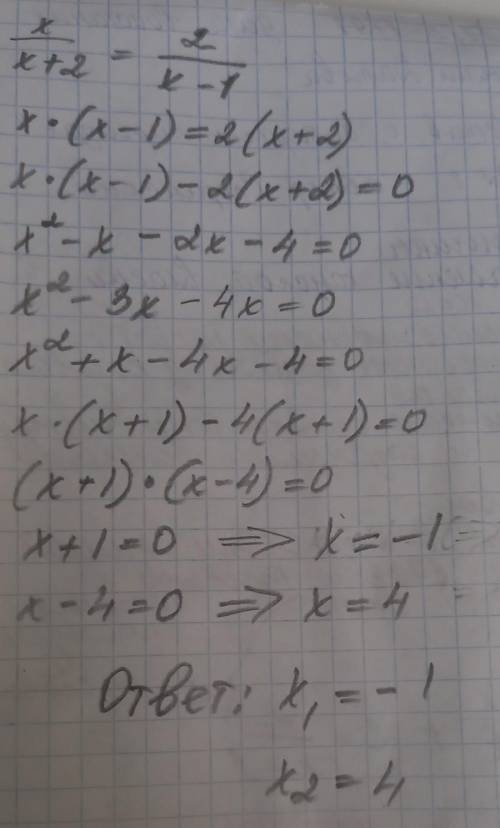 x/(x+2) = 2/(x-1)
x·(x-1)=2(x+2)
x·(x-1)-2(x+2)=0
x²-x-2x-4=0
x²-3x-4x=0
x²+x-4x-4=0
x·(x+1)-4(x+1)=0
(x+1)·(x-4)=0
x+1=0 => x=-1
x-4=0 => x=4
Ответ: x₁=-1
x₂=4